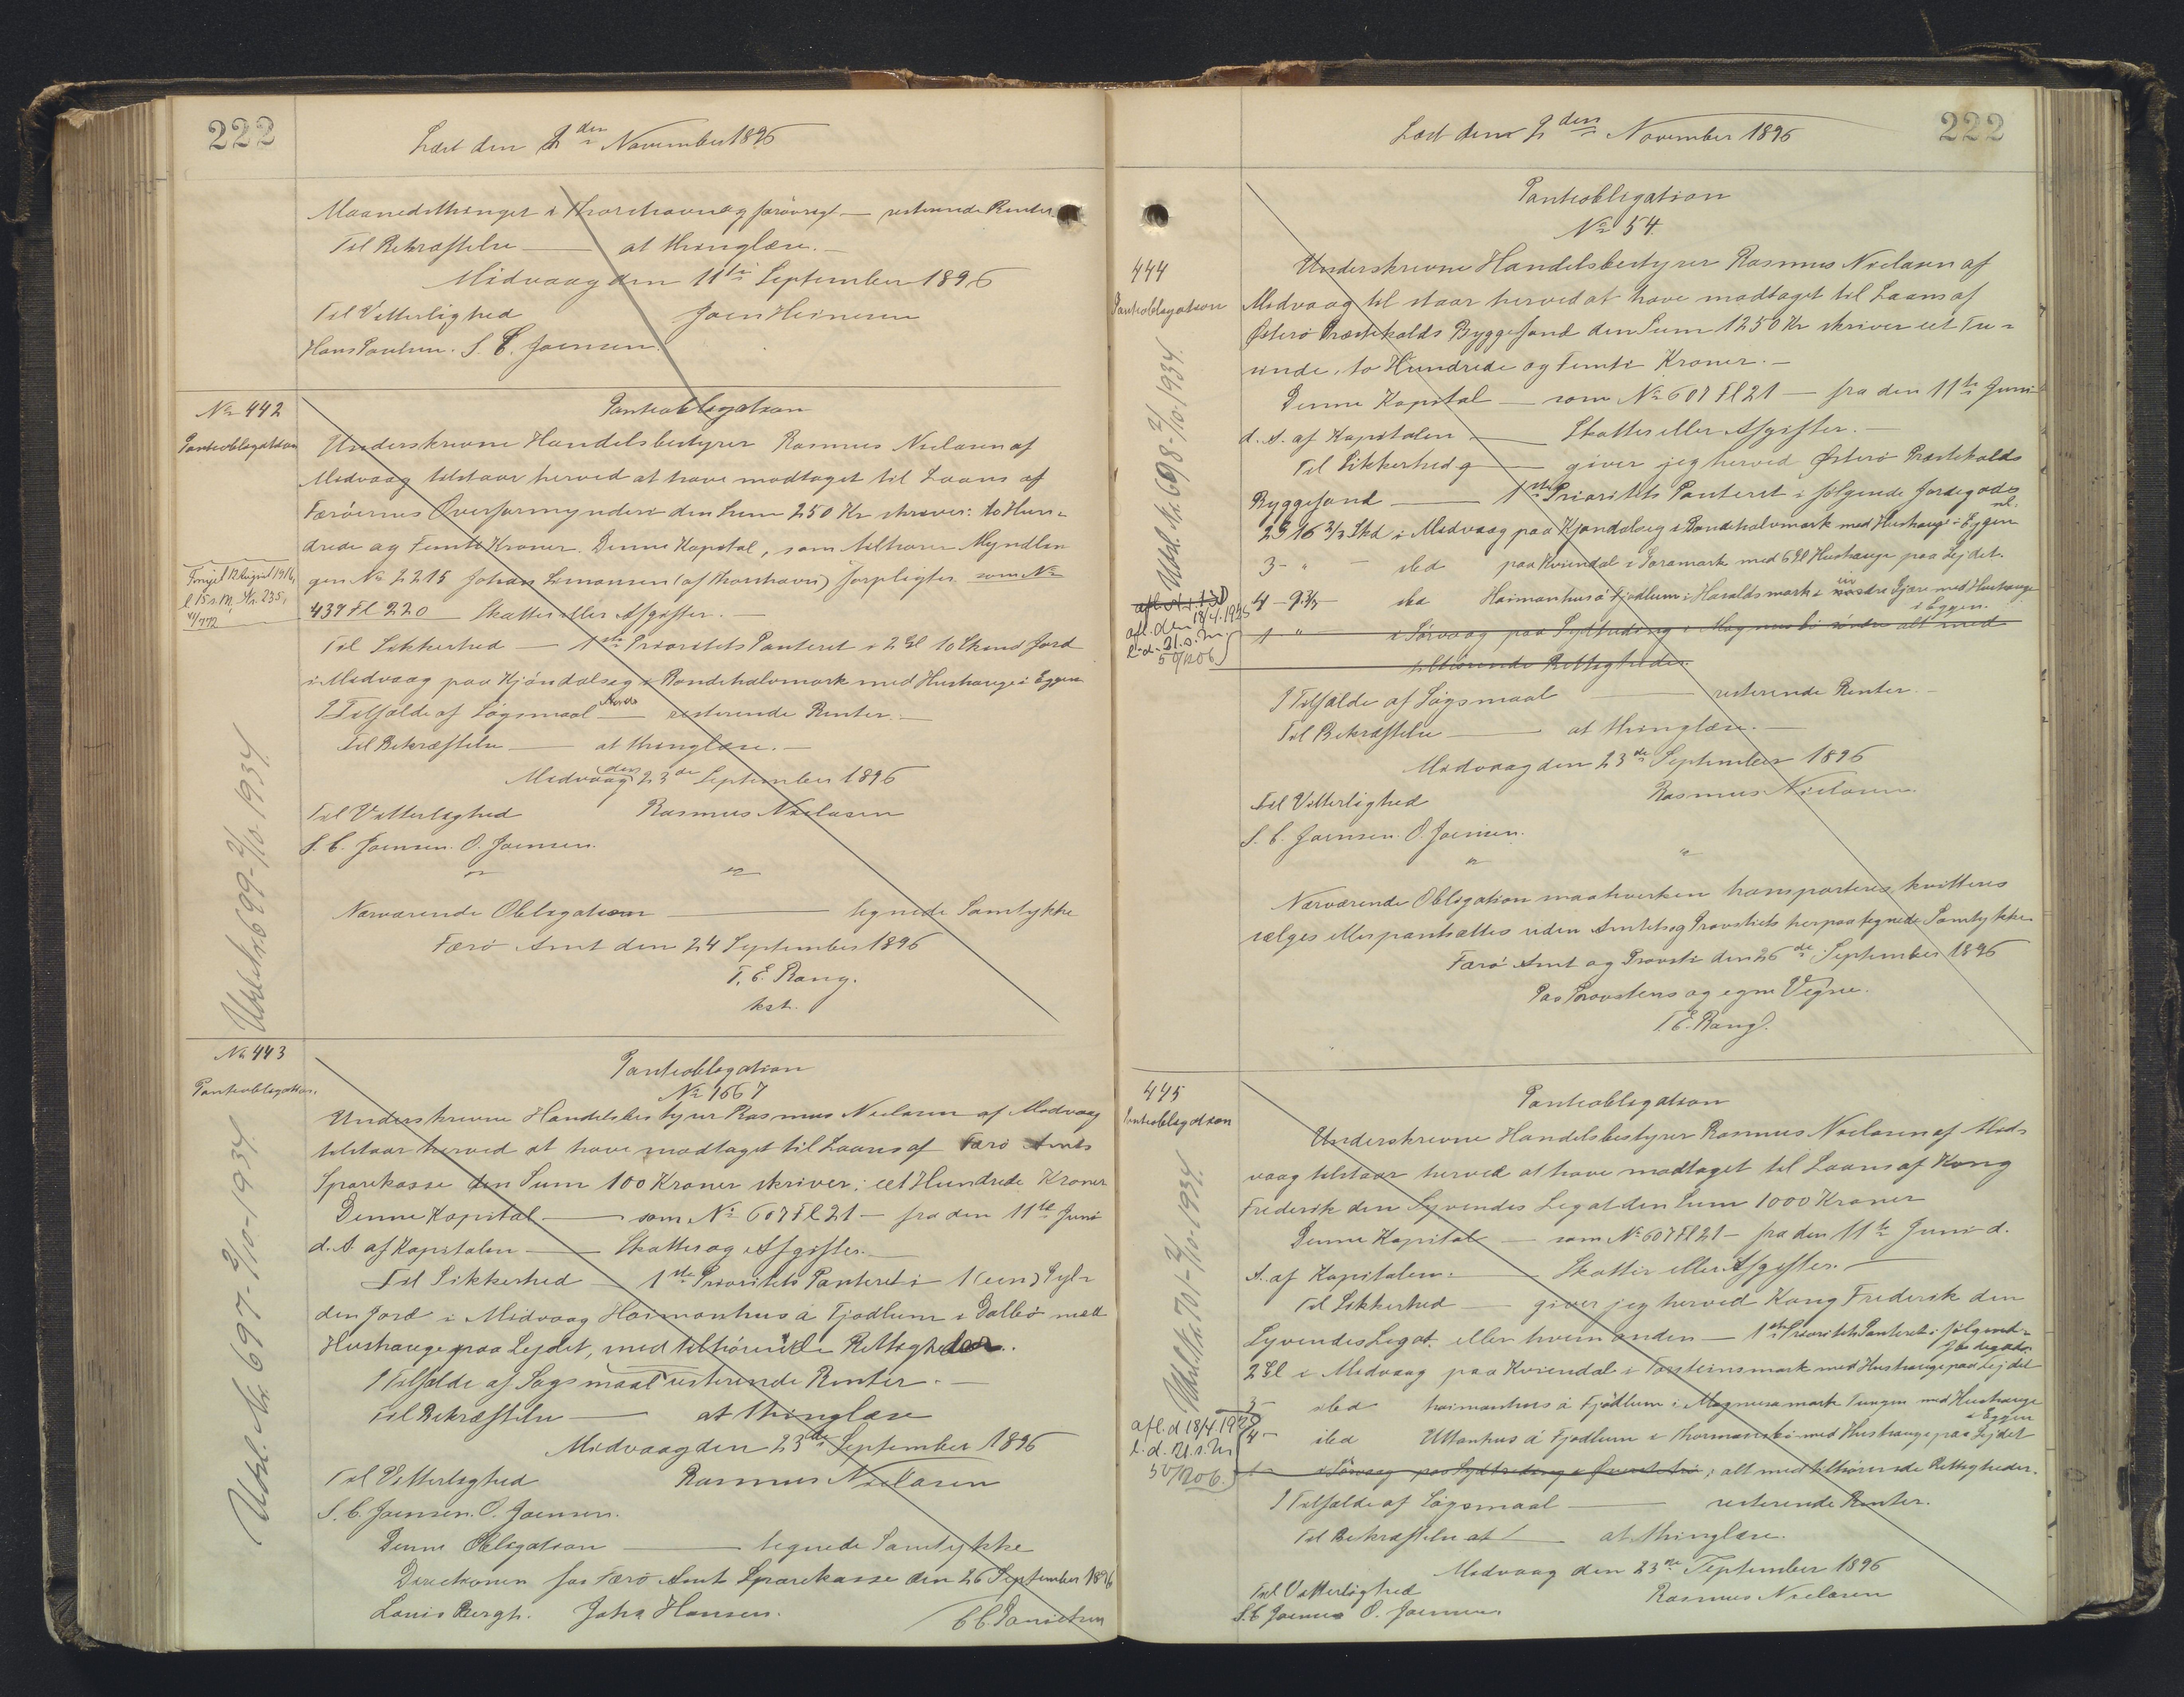 222
Læst den 2den November 1896
Maanedsthinget i Thorshavn og forøvrigt — resterende Renter
Til Bekræftelse — at thinglæse. —
Midvaag den 11te September 1896
Til Vitterlighed Joen Heinesen
Hans Poulsen. S. C. Joensen.
No 442
Pantobligation
Pantobligation
Underskrevne Handelsbestyrer Rasmus Nielsen af
Midvaag tilstaar herved at have modtaget til Laans af
Færøernes Overformynderi den Sum 250 Kr skriver: to Hun-
drede og Femti Kroner. Denne Kapital, som tilhører Myndlin
gen No 2215 Johan Simonsen (af Thorshavn) forpligter som No
437 Fl 220 — Skatter eller Afgifter. —
Fornyet 12 August 1916,
l. 15 s. M. Nr. 235,
41/442
Til Sikkerhed — 1ste Prioritets Panteret i 2 Gl 10 Skind Jord
i Midvaag paa Kjóndalseg i Bondehalvmark med Hushauge i Eggen
I Tilfælde af Søgsmaal — resterende Renter. —
Til Bekræftelse — at thinglæse. —
Midvaag den 23de September 1896
Til Vitterlighed Rasmus Nielsen
S. C. Joensen. O. Joensen.
Nærværende Obligation — tegnede Samtykke
Færø Amt den 24 September 1896
T. E. Bang.
kst.
Udsl. Nr. 699 - 2/10. 1934.
No 443
Pantobligation.
Pantobligation
No 1667
Underskrevne Handelsbestyrer Rasmus Nielsen af Midvaag
tilstaar herved at have modtaget til Laans af Færø Amts
Sparekasse den Sum 100 Kroner skriver: eet Hundrede Kroner
Denne Kapital — som No 607 Fl 21 — fra den 11te Juni
d. A. af Kapitalen — Skatter og Afgifter. —
Til Sikkerhed — 1ste Prioritets Panteret i 1 (een) Gyl-
den Jord i Midvaag Heimanhus á Fjødlum i Dalbø med
Hushauge paa Lejdet, med tilhørende Rettigheder.
I Tilfælde af Søgsmaal resterende Renter. —
Til Bekræftelse — at thinglæse
Midvaag den 23de September 1896
Til Vitterlighed Rasmus Nielsen
S. C. Joensen. O. Joensen.
Denne Obligation — tegnede Samtykke
Direktionen for Færø Amts Sparekasse den 26 September 1896
Louis Bergh. John Hansen. C. C. Danielsen
Udsl. Nr. 697 - 2/10 - 1934.
222
Læst den 2den November 1896
Pantobligation
No 54
444
Pantobligation
Underskrevne Handelsbestyrer Rasmus Nielsen af
Midvaag tilstaar herved at have modtaget til Laans af
Østerø Præstekalds Byggefond den Sum 1250 Kr skriver eet Tu-
sinde, to Hundrede og Femti Kroner. —
Denne Kapital — som No 607 Fl 21 — fra den 11te Juni
d. A. af Kapitalen — Skatter eller Afgifter. —
Til Sikkerhed — giver jeg herved Østerø Præstekalds
Byggefond — 1ste Prioritets Panteret i følgende Jordegods
nl.
2 G 16 2/3 Skd i Midvaag paa Kjondalseg i Bondehalvmark med Hushauge i Eggen
3 - " — ibd paa Kviendal i Garamark med 6 Gl Hushauge paa Lejdet.
4 - 9 3/3 — ibd Heimanhus á Fjødlum i Haraldsmark i nordre Gjare med Hushauge
i Eggen.
1 " i Sørvaag paa Sydtreding i Magnusbø søndre alt med
tilhørende Rettigheder.
afl. den 18/4. 1925
l. d. 21. s. M.
50/1206
I Tilfælde af Søgsmaal — resterende Renter. —
Til Bekræftelse — at thinglæse. —
Midvaag den 23de September 1896
Til Vitterlighed Rasmus Nielsen
S. C. Joensen. O. Joensen.
Nærværende Obligation maa hverken transporteres, kvitteres
sælges eller pantsættes uden Amtets og Provstiets herpaa tegnede Samtykke
Færø Amt og Provsti den 26de September 1896
Paa Provstens og egne Vegne.
T. E. Bang.
Udsl. Nr. 698 - 2/10. 1934.
445
Pantobligation
Pantobligation
Underskrevne Handelsbestyrer Rasmus Nielsen af Mid-
vaag tilstaar herved at have modtaget til Laans af Kong
Frederik den Syvendes Legat den Sum 1000 Kroner
Denne Kapital — som No 607 Fl 21 — fra den 11te Juni d.
A. af Kapitalen. — Skatter eller Afgifter. —
Til Sikkerhed — giver jeg herved Kong Frederik den
Syvendes Legat, eller hvem anden — 1ste Prioritets Panteret i følgende
Jordegods
2 Gl i Midvaag paa Kviendal i Torsteinsmark med Hushauge paa Lejdet
3 - ibd heimanhus á Fjødlum i Magnusamark Tungen med Hushauge
i Eggen
4 - ibd Uttanhus á Fjødlum i Thormansbø med Hushauge paa Lejdet
1 - i Sørvaag paa Sydtreding i, alt med tilhørende Rettigheder.
afl. d 18/4. 1925
l. d. 21. s. M.
50/1206.
I Tilfælde af Søgsmaal — resterende Renter.
Til Bekræftelse at — at thinglæse.
Midvaag den 23de September 1896
Til Vitterlighed Rasmus Nielsen
S. C. Joensen O. Joensen.
Udsl. Nr. 701 - 2/10 - 1934.